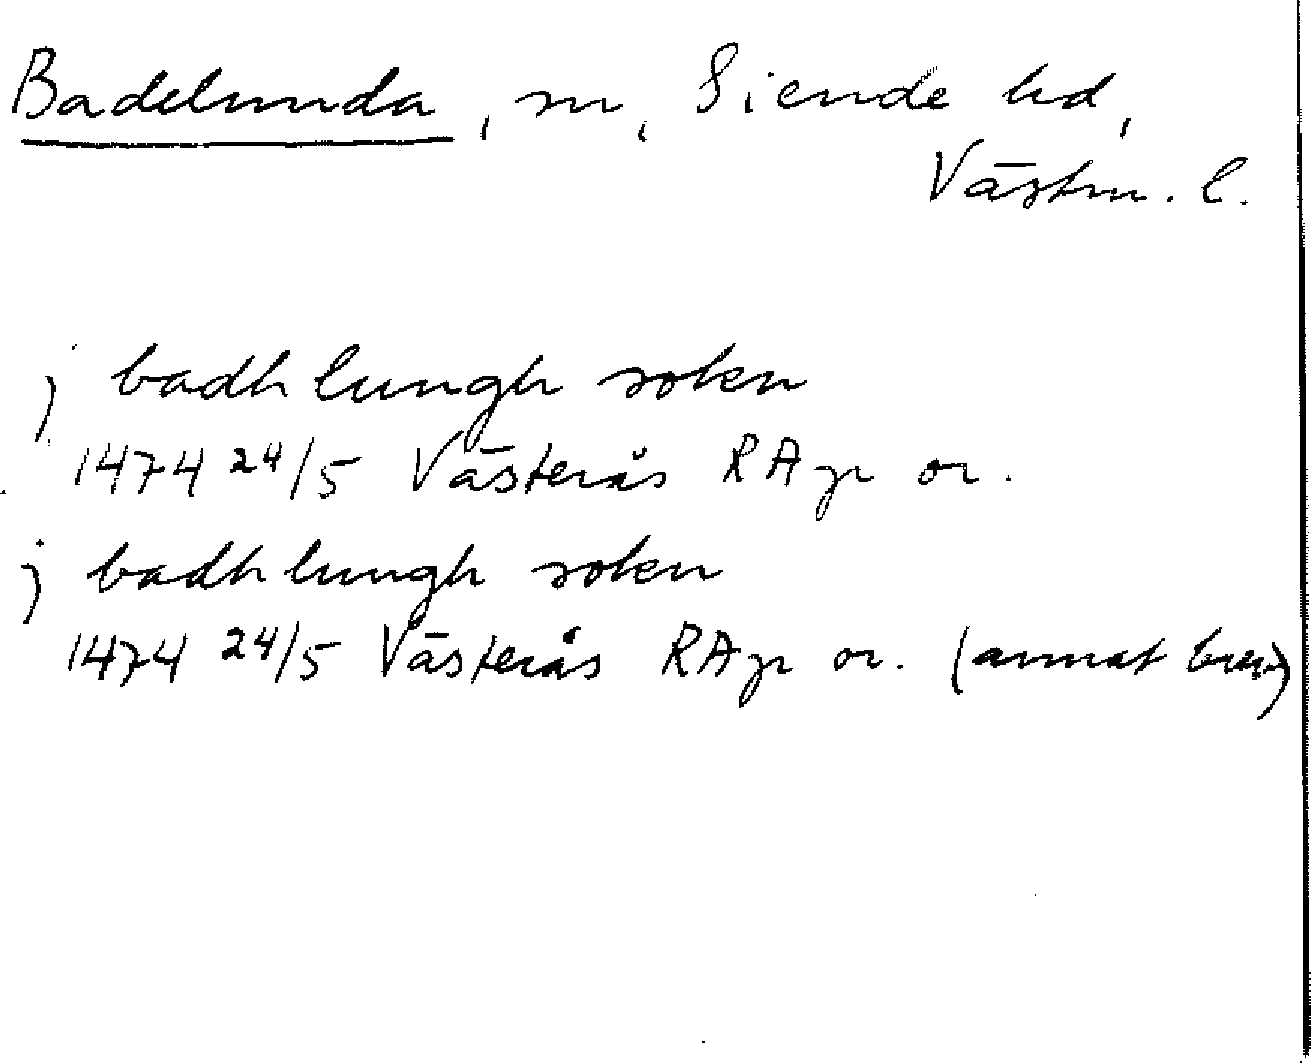 Badelunda, sn, Siende hd,
Västm. l.
j badhlungh sokn
1474 24/5 Västerås RAp or.
j badhlungh sokn
1474 24/5 Västerås RAp or. (annat brev)